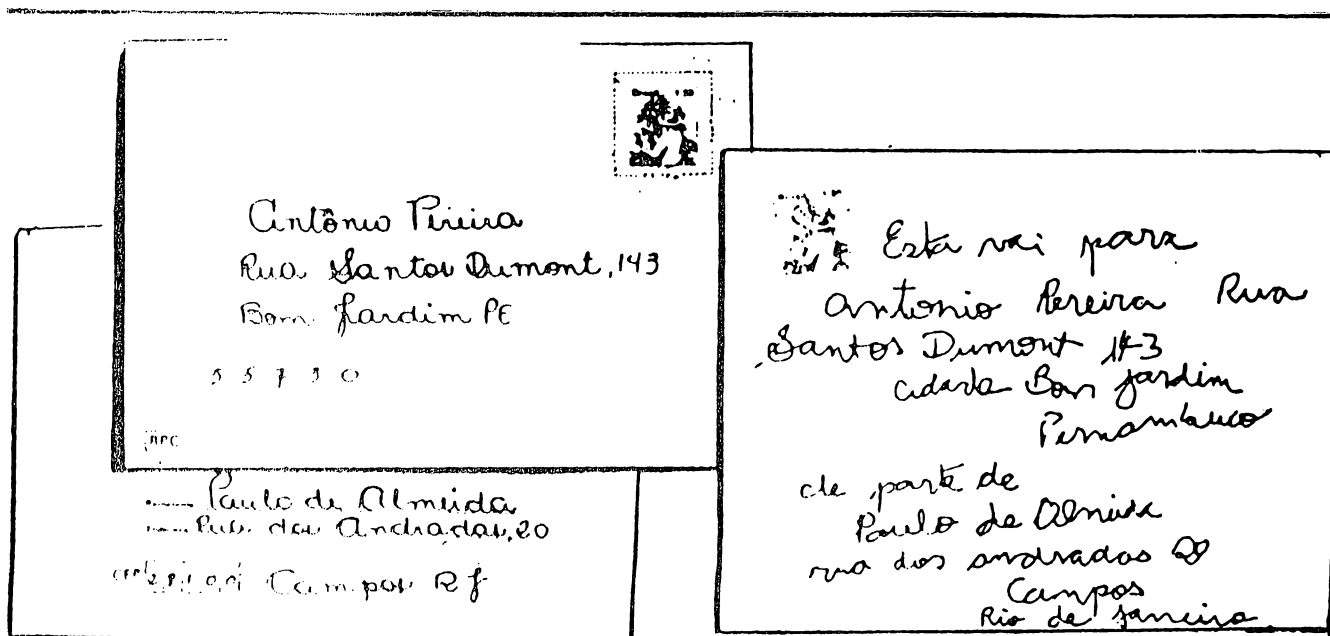 Antônio Pereira
Rua Santos Dumont, 143
Bom Jardim PE
55730
Paulo de Almeida
Rua dos Andradas, 20
Campos RJ
Esta vai para
Antonio Pereira Rua
Santos Dumont 143
cidade Bom Jardim
Pernambuco
de parte de
Paulo de Almeida
rua dos andradas 20
Campos
Rio de Janeiro